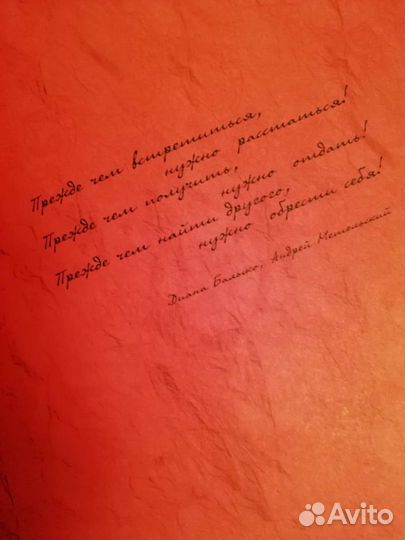 Прежде чем встретиться,
нужно расстаться!
Прежде чем получить,
нужно отдать!
Прежде чем найти другого,
нужно обрести себя!
Диана Балыко, Андрей Метельский
Avito